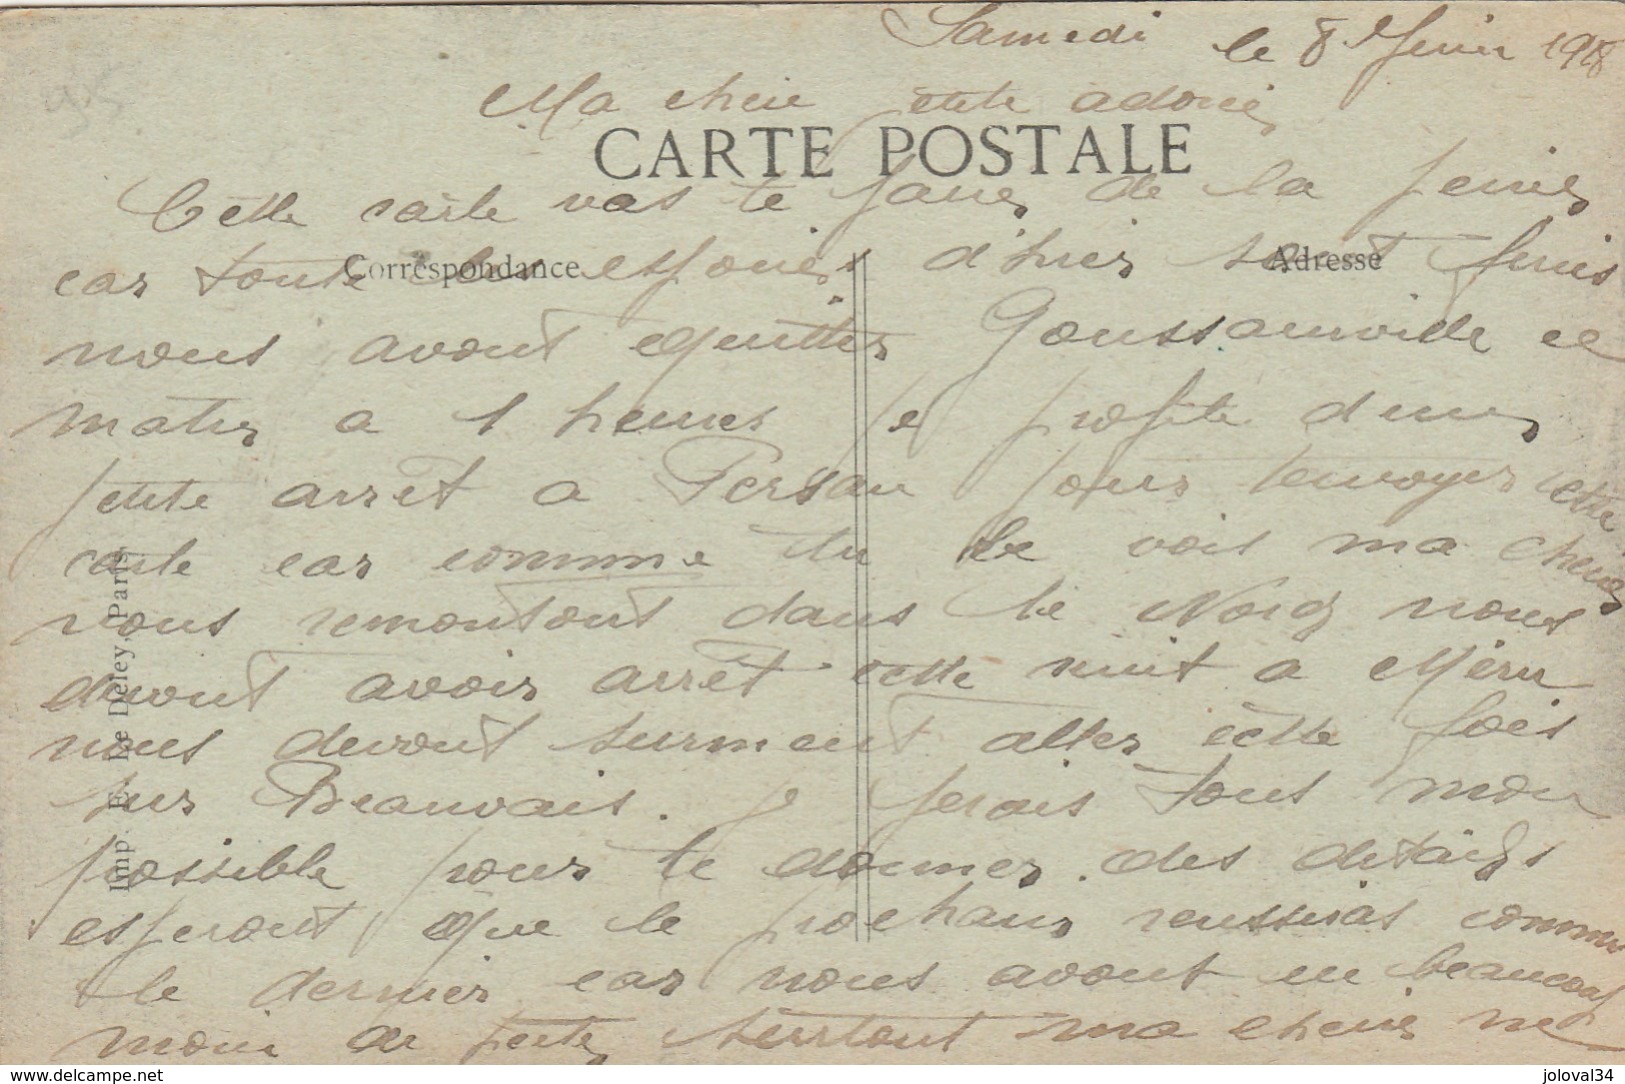 Samedi le 8 Juin 1918
Ma cherie petite adoré
CARTE POSTALE
Cette carte vas te faire de la peine
Correspondance
Adresse
car toute les espoirs d'hier sont finis
nous avont quitter Goussainville ce
matin a 1 heures je profite d'une
petite arret a Persan pour t'envoyer cette
carte car comme tu le vois ma cherie
nous remontont dans le Nord nous
devont avoir arret cette nuit a Méru
nous devont surment aller cette fois
sur Beauvais. je ferais tous mon
possible pour te donner des details
esperont que le prochain reussiras comme
le dernier car nous avont eu beaucoup
moin de perte surtout ma cherie ne
Imp. E. Le Deley, Paris
95
delcampe.net
joloval34